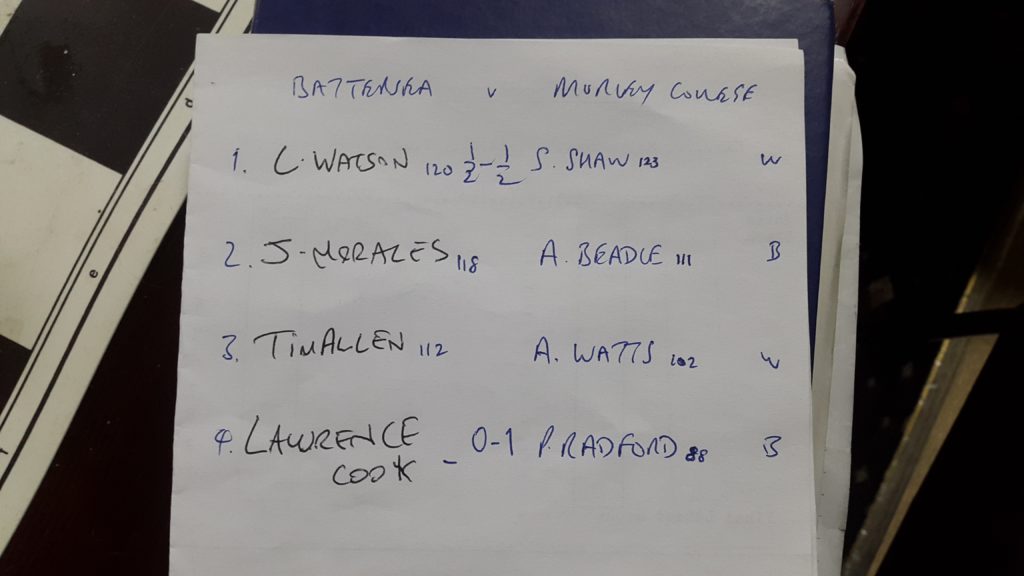 BATTERSEA v MORLEY COLLEGE
1. L. WATSON 120 1/2-1/2 S. SHAW 123 W
2. J. MORALES 118 A. BEADLE 111 B
3. TIM ALLEN 112 A. WATTS 102 W
4. LAWRENCE COOK - 0-1 P. RADFORD 88 B